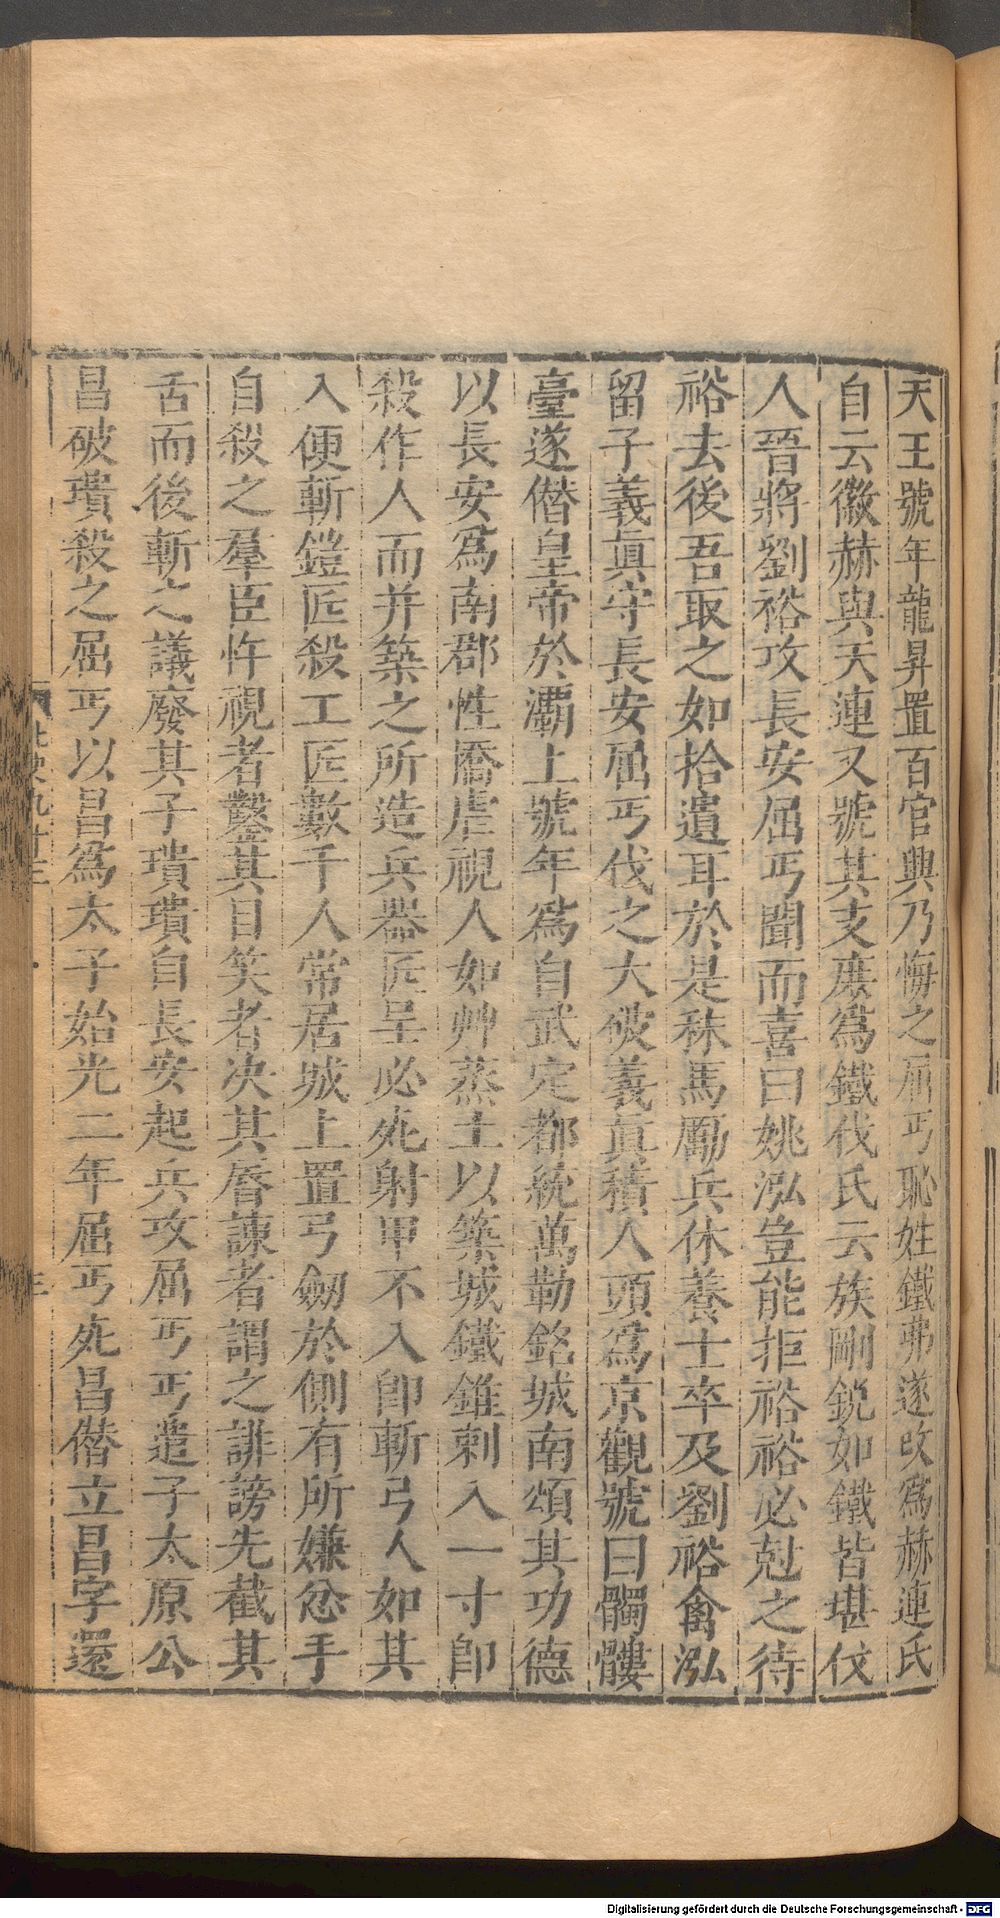 天王號年龍昇置百官興乃悔之屈丐恥姓鐵弗遂改爲赫連氏
自云徽赫與天連又號其支庶爲鐵伐氏云族剛銳如鐵皆堪伐
人晉將劉裕攻長安屈丐聞而喜曰姚泓豈能拒裕裕必尅之待
裕去後吾取之如拾遺耳於是秣馬厲兵休養士卒及劉裕禽泓
留子義眞守長安屈丐伐之大破義眞積人頭爲京觀號曰髑髏
臺遂僭皇帝於灞上號年爲自武定都統萬勒銘城南頌其功德
以長安爲南郡性憍虐視人如艸蒸土以築城鐵錐刺入一寸卽
殺作人而并築之所造兵器匠呈必死射甲不入卽斬弓人如其
入便斬鎧匠殺工匠數千人常居城上置弓劒於側有所嫌忿手
自殺之羣臣忤視者鑿其目笑者决其脣諫者謂之誹謗先截其
舌而後斬之議廢其子璝璝自長安起兵攻屈丐丐遣子太原公
昌破璝殺之屈丐以昌爲太子始光二年屈丐死昌僭立昌字還
北史九十三
Digitalisierung gefördert durch die Deutsche Forschungsgemeinschaft - DFG